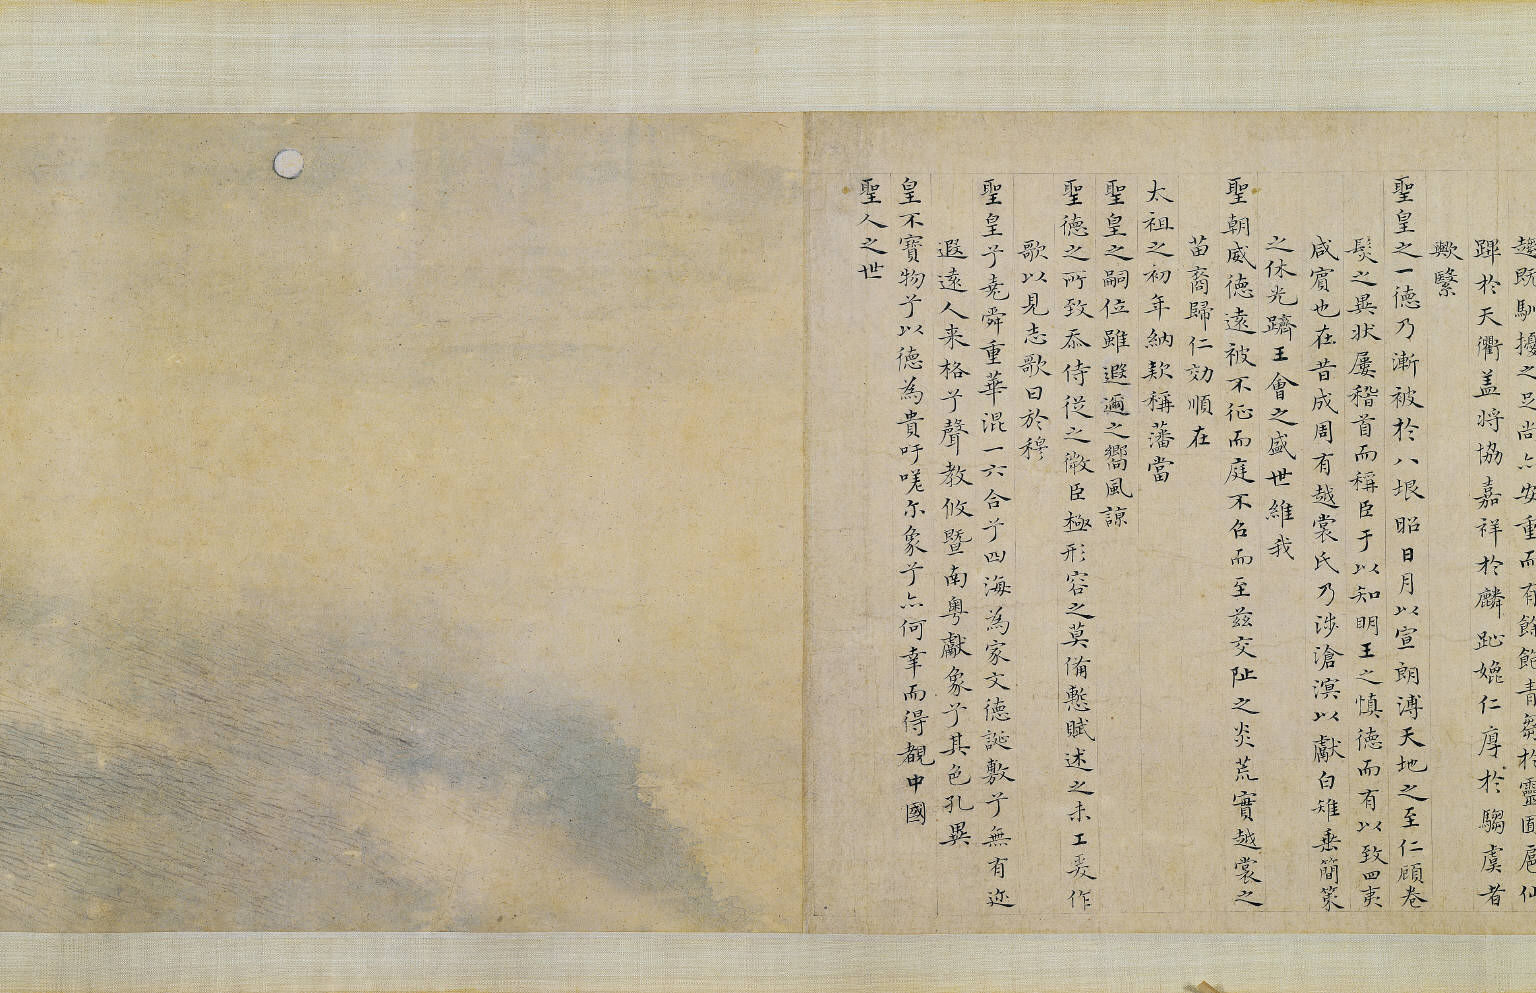 趨既馴擾之足尚亦安重而有餘飽青芻於靈囿扈仙
蹕於天衢盖將協嘉祥於麟趾媲仁厚於騶虞者
歟繄
聖皇之一德乃漸被於八垠昭日月以宣朗溥天地之至仁顧卷
髮之異状屢稽首而稱臣于以知明王之慎德而有以致四夷
咸賓也在昔成周有越裳氏乃涉滄溟以獻白雉垂簡策
之休光躋王會之盛世維我
聖朝威德遠被不征而庭不召而至兹交阯之炎荒實越裳之
苗裔歸仁効順在
太祖之初年納款稱藩當
聖皇之嗣位雖遐邇之嚮風諒
聖德之所致忝侍從之微臣極形容之莫備慙賦述之未工爰作
歌以見志歌曰於穆
聖皇兮堯舜重華混一六合兮四海為家文德誕敷兮無有迩
遐遠人来格兮聲教攸暨南粤獻象兮其色孔異
皇不寳物兮以德為貴吁嗟尓象兮亦何幸而得覩中國
聖人之世